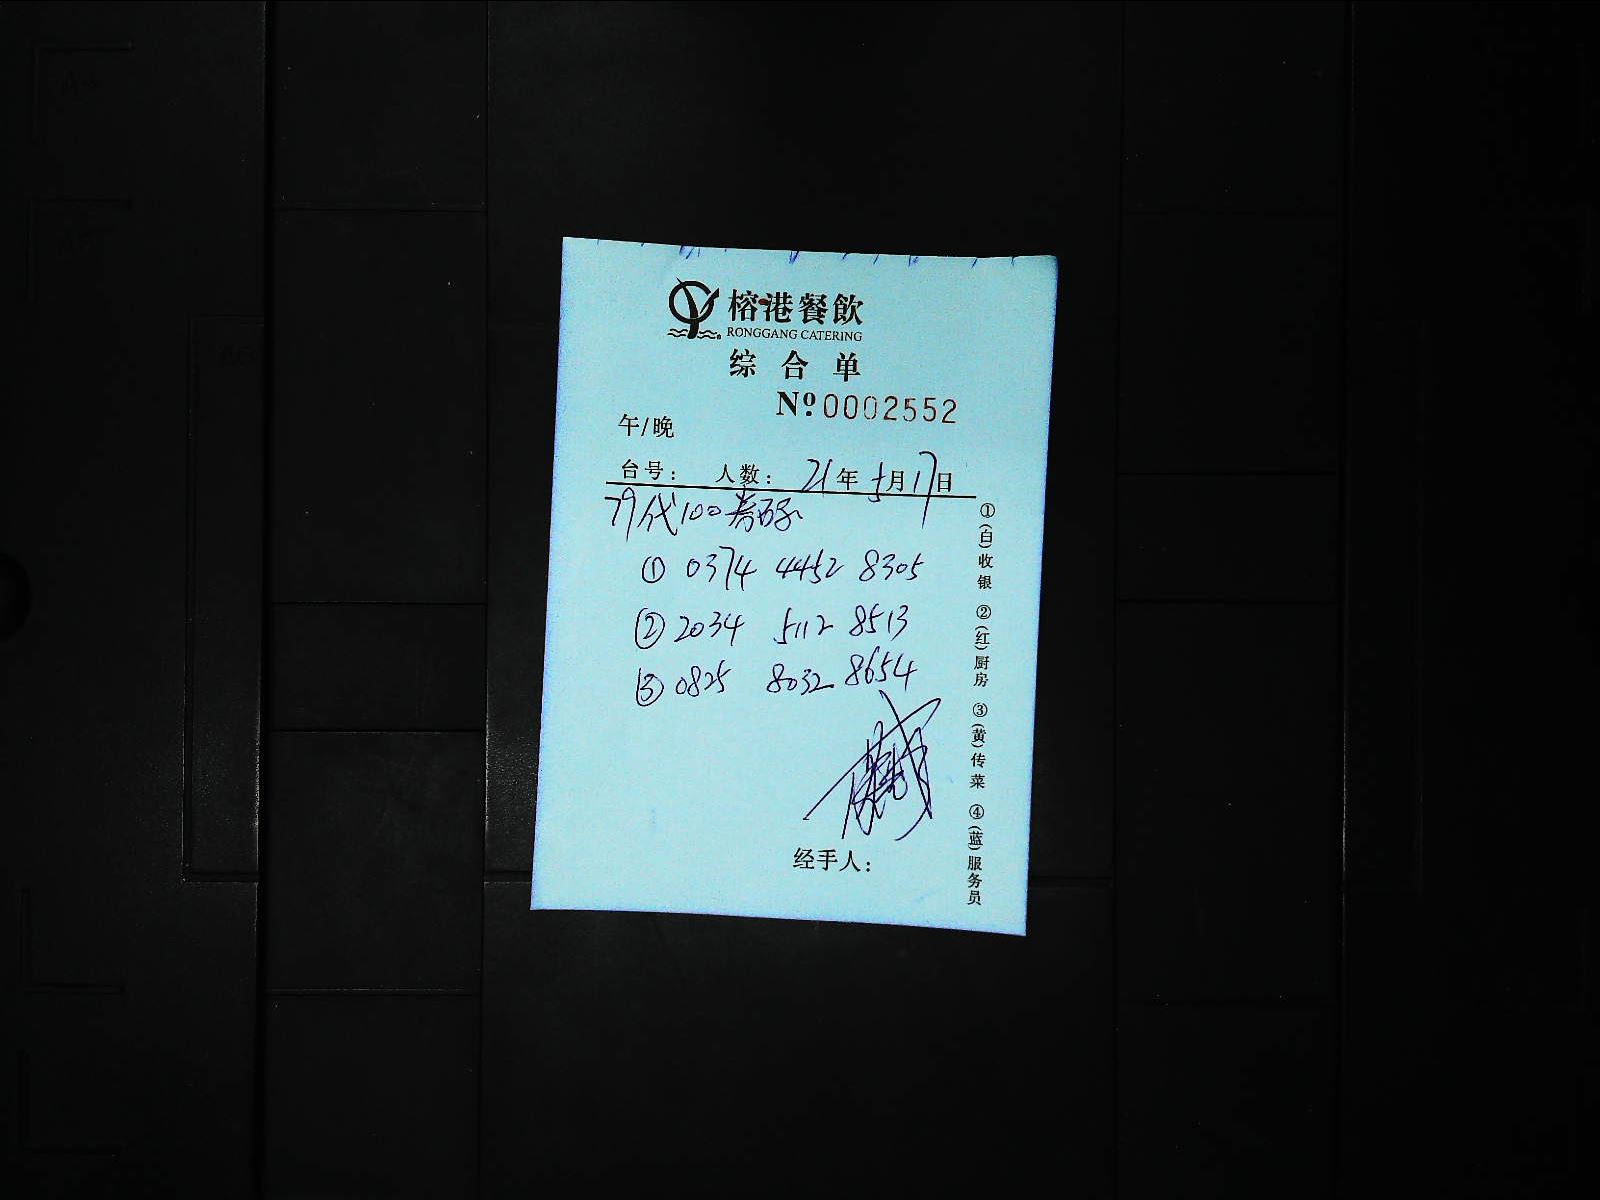 榕港餐飲
RONGGANG CATERING
综合单
Nº 0002552
午/晚
台号： 人数： 21年5月17日
79代100券码
① 0374 4452 8305
② 2034 5112 8513
③ 0825 8032 8654
经手人：
①(白)收银 ②(红)厨房 ③(黄)传菜 ④(蓝)服务员